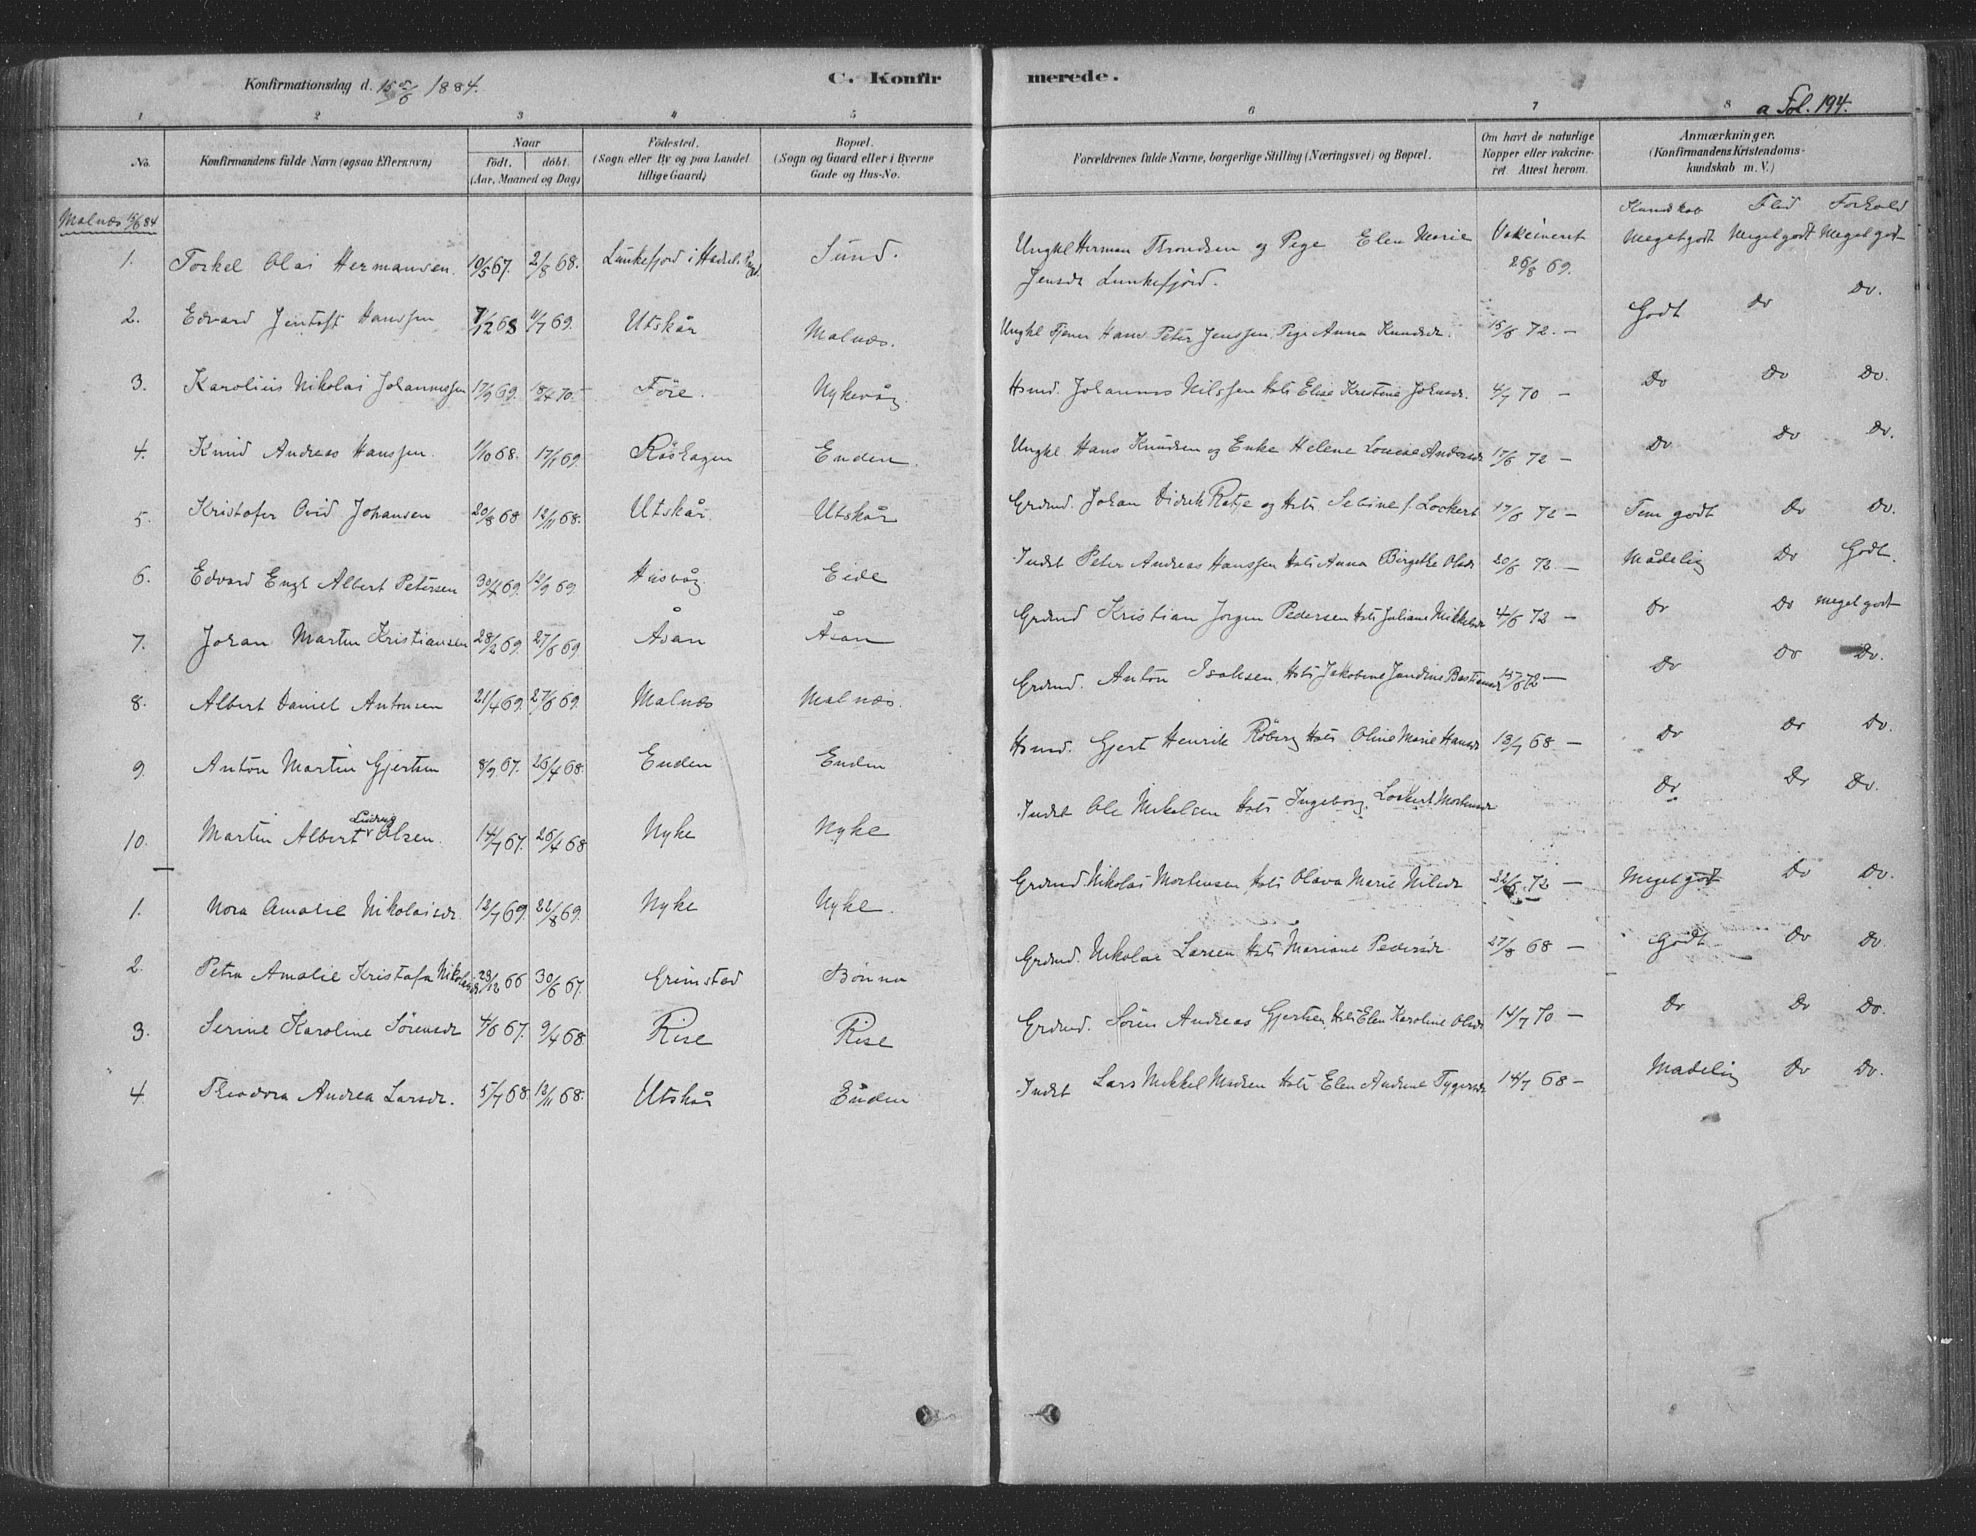 Konfirmationsdag d. 15 5/6 1884.
C. Konfirmerede.
a Fol. 194.
1 2 3 4 5 6 7 8
No. Konfirmandens fulde Navn (ogsaa Efternavn) Naar födt, döbt. (Aar, Maaned og Dag) Födested. (Sogn eller By og paa Landet tillige Gaard) Bopæl. (Sogn og Gaard eller i Byerne Gade og Hus-No.
Forældrenes fulde Navne, borgerlige Stilling (Næringsvei) og Bopæl. Om havt de naturlige Kopper eller vakcineret. Attest herom. Anmærkninger. (Konfirmandens Kristendomskundskab m. V.)
Malnæs 15/6 84
Kundskab Flid Forhold
1. Torkel Olai Hermansen. 10/5 67. 2/8 68. Lunkefjord i Hadsel Sund. Ungkl Herman Throndsen og Pige Elen Marie Vakcineret Meget godt Meget godt Meget godt
Jensdr Lunkefjord. 26/8 69.
2. Edvard Jentoft Hanssen 7/12 68 11/7 69. Utskår Malnæs. Ungkl Tjener Hans Peter Jenssen Pige Anna Knudsdr. 15/6 72. – Godt Do Do.
3. Karolius Nikolai Johannessen 17/9 69. 18/4 70. Före. Nykevåg Hsmd. Johannes Nilssen Hst: Elise Kristine Johnsdr. 4/7 70 – Do Do Do.
4. Knud Andreas Hanssen. 1/10 68. 17/1 69. Röskagen Enden. Ungkl. Hans Knudsen og Enke Helene Lovise Andersdr 17/6 72 – Do Do Do.
5. Kristofer Ovid Johansen 20/8 68 12/11 68. Utskår. Utskår Grdmd. Johan Didrik Ratje og Hst: Sebine f. Lockert 17/6 72 – Tem godt Do Do.
6. Edvard Engl Albert Petersen 30/4 69. 12/9 69. Husvåg Eide Indst Peter Andreas Hanssen Hst: Anna Birgethe Olsdr 20/6 72. – Mådelig Do Godt.
7. Johan Martin Kristiansen 28/2 69. 27/6 69 Åsan Åsan Grdmd Kristian Jørgen Pedersen Hst: Juliane Mikkelsdr 4/6 72 – Do Do Meget godt
8. Albert Daniel Antonsen 21/4 69. 27/6 69. Malnæs Malnæs. Grdmd. Anton Isaksen, Hst: Jakobine Jendine Bastiansdr 15/6 72 – Do Do Do.
9. Anton Martin Gjertsen 8/9 67. 26/4 68. Enden Enden Hsmd. Gjert Henrik Röberg Hst: Oline Marie Hansdr 13/7 68. – Do Do Do.
10. Martin Albert Ludvig Olsen. 14/7 67. 26/4 68 Nyke Nyke Indst Ole Mikelsen Hst: Ingeborg Lockert Mortensdr Do Do Do.
1. Nora Amalie Nikolaisdr. 12/7 69. 22/8 69. Nyke Nyke. Grdmd. Nikolai Mortensen Hst: Olava Marie Nilsdr 22/6 72 – Meget godt Do Do.
2. Petra Amalie Kristofa Nikolaisdr 28/12 66 30/6 67. Grimstad Bönna Grdmd. Nikolai Larsen Hst: Mariane Pedersdr 27/8 68 – Godt Do Do.
3. Serine Karoline Sörensdr 4/6 67. 9/4 68. Rise Rise Grdmd. Sören Andreas Gjertsen, Hst: Elen Karoline Olsdr 14/7 70 – Do Do Do.
4. Theodora Andrea Larsdr. 5/7 68. 13/11 68. Utskår Enden Indst Lars Mikkel Madsen Hst: Elen Andrine Tygersdr 14/7 68 – Madelig Do Do.